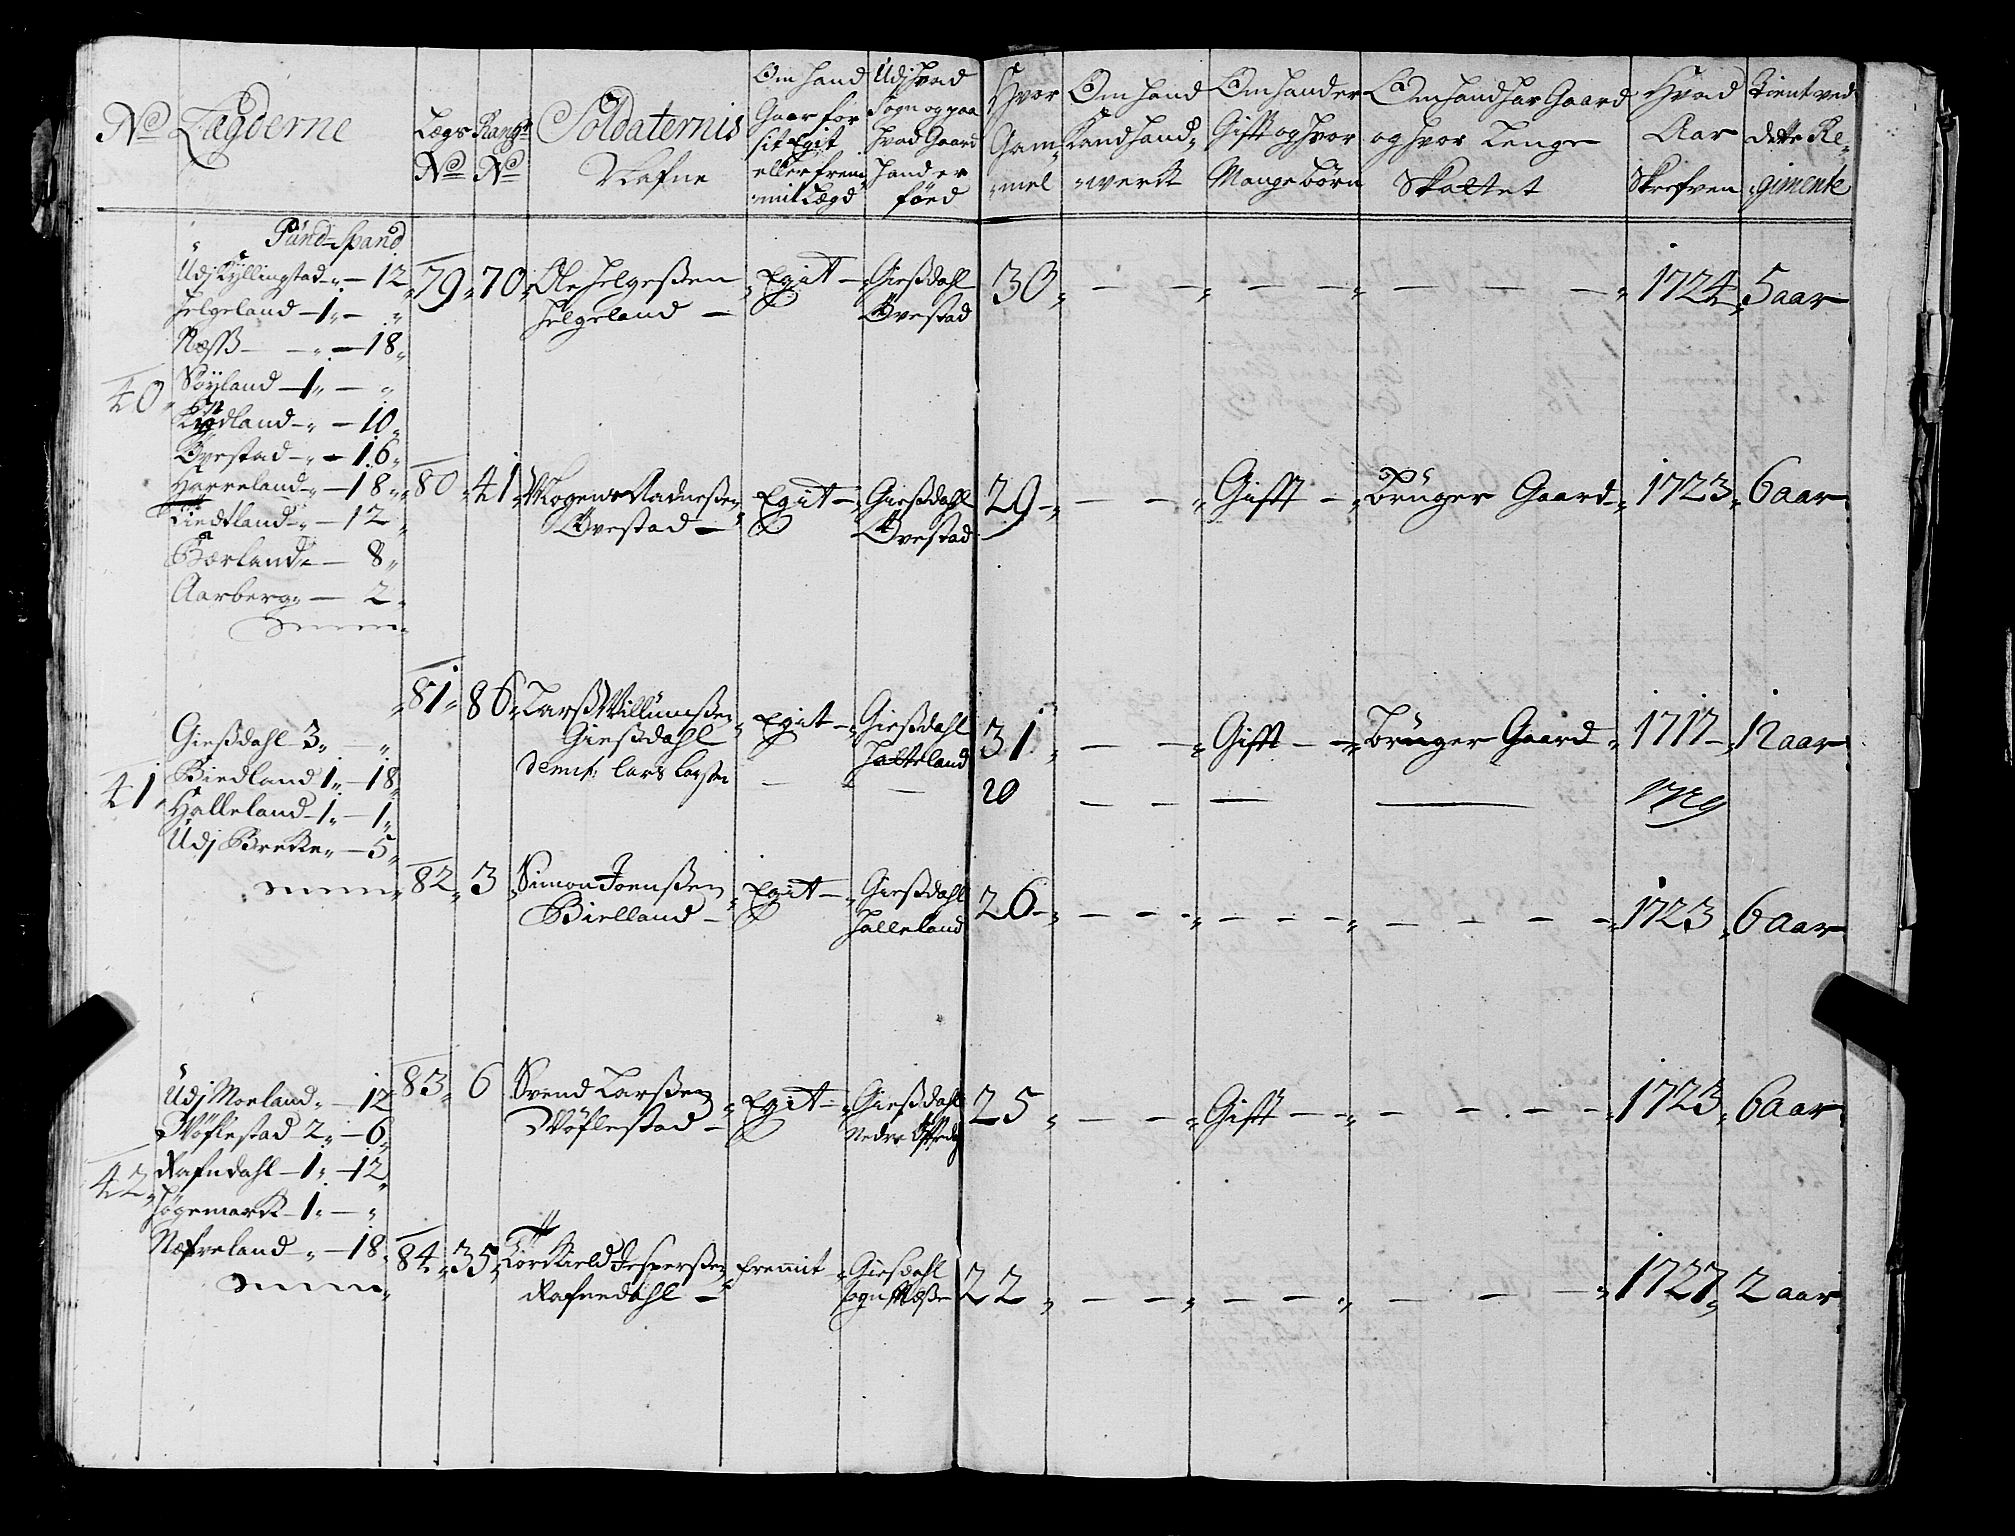 No Lægderne
Lægs No
Rangs No
Soldaternis Nafne
Om hand Gaar for sit Egit eller fremmit Lægd
Udj hvad Sogn og paa hvad Gaard hand er föed
Hvor Gammel
Om hand Kand handwerk
Om hand er Gift og hvor Mange börn
Om hand har Gaard og hvor Lenge Skattet
Hvad Aar Skrefven
Tient ved dette Regimente
Pund – Spand
40
Udj Kyllingstad „ – 12
Helgeland – 1 „ – „
Næss – „ – 18
Söyland – 1 „ – „
Kydland – „ – 10
Övestad – „ – 16
Haveland – „ – 18
Tiedtland – „ – 12
Bærland – 8
Aarberg – 2
79 70 Ole Helgeßen Helgeland – Egit – Gießdahl Övestad 30 – – – – – – – 1724 5 aar
80 41 Mogens Aadneßen Övestad – Egit – Gießdahl Övestad 29 – – Gift – Brüger Gaard 1723 6 aar
41
Gießdahl 3 „ – „
Biedland 1 „ – 18
Halleland – 1 – 1
Udj Brekke – 5
81 86 Larß Willumßen Gießdahl – Egit – Gießdahl Halleland 31 – – Gift – Brüger Gaard 1717 12 aar
demit: Lars Larsen – – 20 – – – – 1729
82 3 Simon Joenßen Bielland – Egit – Gießdahl Halleland 26 – – – – – – – 1723 6 aar
42
Udj Moeland – 12
Wöflestad 2 „ – 6
Rafndahl – 1 „ – 12
Högemark – 1 „ – „
Næfreland „ – 18
83 6 Svend Larßen Wöflestad – Egit – Gießdahl Nedre 25 – – Gift – – – – 1723 6 aar
84 35 Torkield Jesperßen Rafnedahl – fremmit Giesdahl Sogn Næße 22 – – – – – – – 1727 2 aar